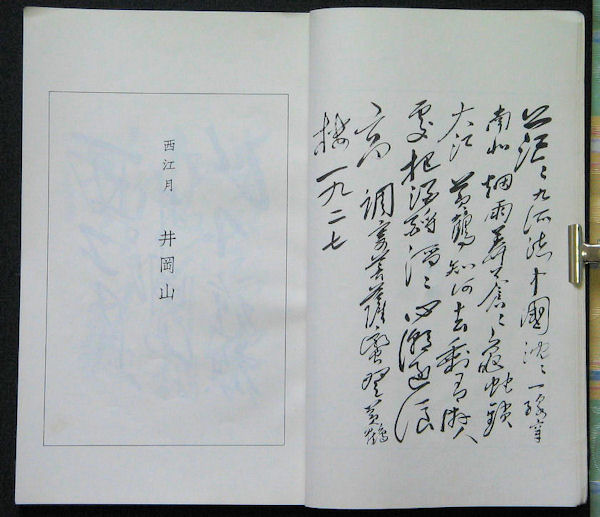 茫〻九派流中國沈〻一線穿
南北烟雨莽蒼〻龜蛇鎖
大江 黃鶴知何去剩有遊人
處把酒酹滔〻心潮逐浪
高 調寄菩薩蠻登黃鶴
樓 一九二七
西江月 井岡山